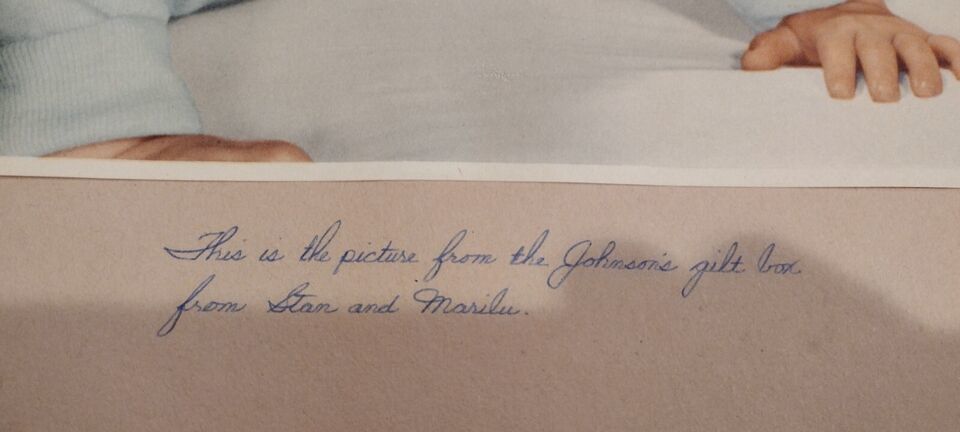 This is the picture from the Johnson's gift box
from Stan and Marilu.